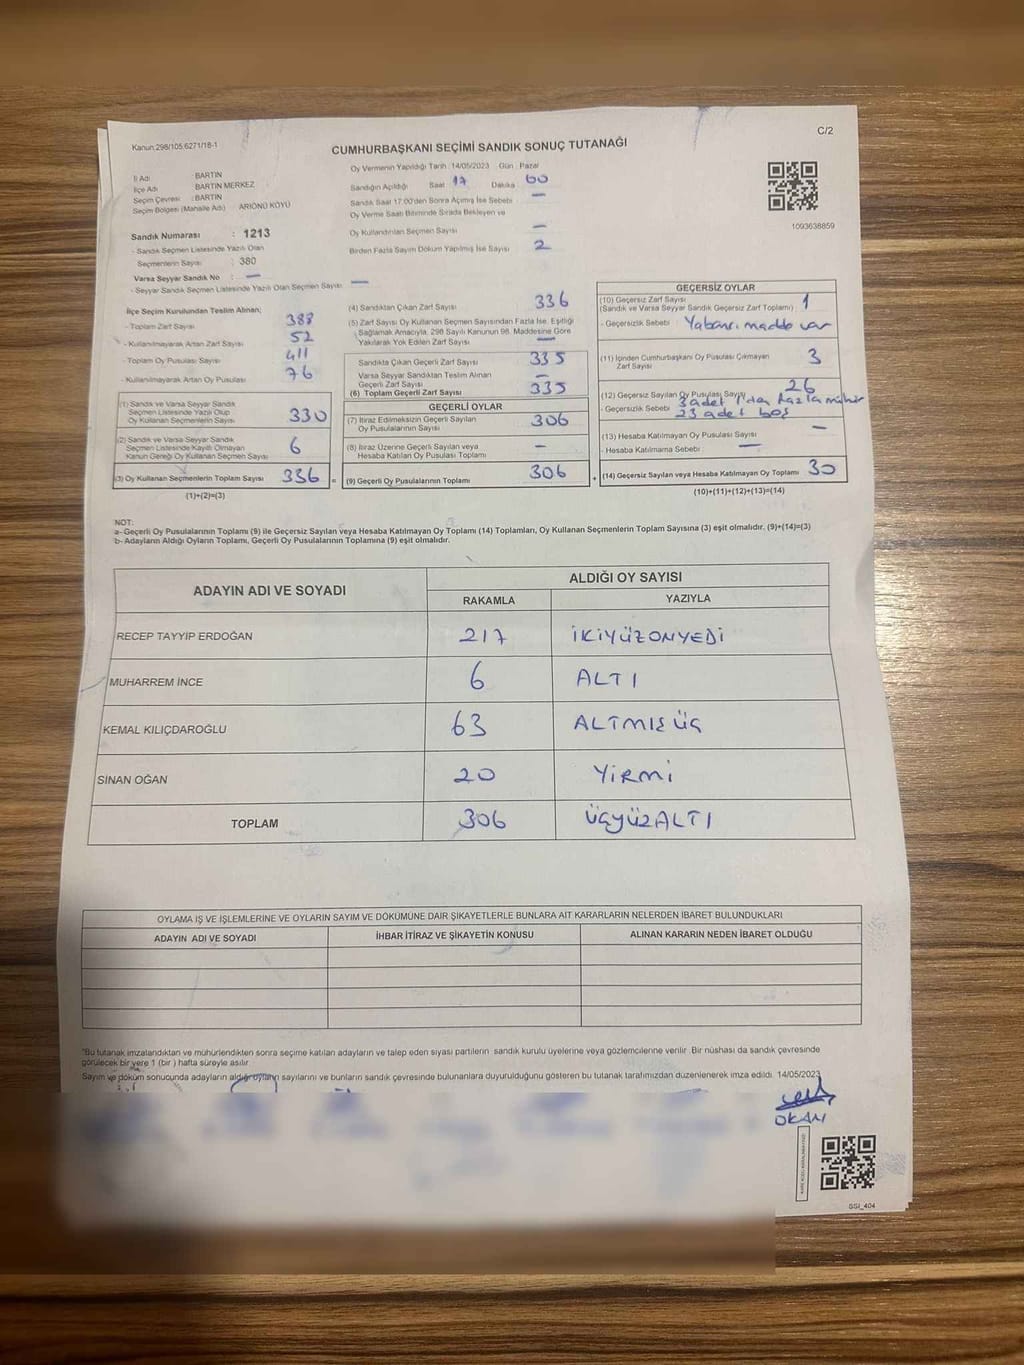 Kanun:298/105.6271/18-1
C/2
CUMHURBAŞKANI SEÇİMİ SANDIK SONUÇ TUTANAĞI
İl Adı BARTIN
İlçe Adı BARTIN MERKEZ
Seçim Çevresi : BARTIN
Seçim Bölgesi (Mahalle Adı) ARIÖNÜ KÖYÜ
Sandık Numarası : 1213
- Sandık Seçmen Listesinde Yazılı Olan
Seçmenlerin Sayısı : 380
Varsa Seyyar Sandık No : —
- Seyyar Sandık Seçmen Listesinde Yazılı Olan Seçmen Sayısı —
Oy Vermenin Yapıldığı Tarih : 14/05/2023 Gün : Pazar
Sandığın Açıldığı Saat 17 Dakika 00
Sandık Saat 17:00'den Sonra Açılmış İse Sebebi : —
Oy Verme Saati Bitiminde Sırada Bekleyen ve
Oy Kullandırılan Seçmen Sayısı —
Birden Fazla Sayım Döküm Yapılmış İse Sayısı 2
1093638859
İlçe Seçim Kurulundan Teslim Alınan;
- Toplam Zarf Sayısı 388
- Kullanılmayarak Artan Zarf Sayısı 52
- Toplam Oy Pusulası Sayısı 411
- Kullanılmayarak Artan Oy Pusulası 76
(1) Sandık ve Varsa Seyyar Sandık
Seçmen Listesinde Yazılı Olup
Oy Kullanan Seçmenlerin Sayısı 330
(2) Sandık ve Varsa Seyyar Sandık
Seçmen Listesinde Kayıtlı Olmayan
Kanun Gereği Oy Kullanan Seçmen Sayısı 6
(3) Oy Kullanan Seçmenlerin Toplam Sayısı 336 =
(1)+(2)=(3)
(4) Sandıktan Çıkan Zarf Sayısı 336
(5) Zarf Sayısı Oy Kullanan Seçmen Sayısından Fazla İse, Eşitliği
Sağlamak Amacıyla, 298 Sayılı Kanunun 98. Maddesine Göre
Yakılarak Yok Edilen Zarf Sayısı —
Sandıkta Çıkan Geçerli Zarf Sayısı 335
Varsa Seyyar Sandıktan Teslim Alınan
Geçerli Zarf Sayısı —
(6) Toplam Geçerli Zarf Sayısı 335
GEÇERLİ OYLAR
(7) İtiraz Edilmeksizin Geçerli Sayılan
Oy Pusulalarının Sayısı 306
(8) İtiraz Üzerine Geçerli Sayılan veya
Hesaba Katılan Oy Pusulası Toplamı —
(9) Geçerli Oy Pusulalarının Toplamı 306 +
GEÇERSİZ OYLAR
(10) Geçersiz Zarf Sayısı
(Sandık ve Varsa Seyyar Sandık Geçersiz Zarf Toplamı) 1
- Geçersizlik Sebebi : Yabancı madde var
(11) İçinden Cumhurbaşkanı Oy Pusulası Çıkmayan
Zarf Sayısı 3
(12) Geçersiz Sayılan Oy Pusulası Sayısı 26
- Geçersizlik Sebebi 3 adet 1'den fazla mühür
23 adet boş
(13) Hesaba Katılmayan Oy Pusulası Sayısı —
- Hesaba Katılmama Sebebi —
(14) Geçersiz Sayılan veya Hesaba Katılmayan Oy Toplamı 30
(10)+(11)+(12)+(13)=(14)
NOT:
a- Geçerli Oy Pusulalarının Toplamı (9) ile Geçersiz Sayılan veya Hesaba Katılmayan Oy Toplamı (14) Toplamları, Oy Kullanan Seçmenlerin Toplam Sayısına (3) eşit olmalıdır. (9)+(14)=(3)
b- Adayların Aldığı Oyların Toplamı, Geçerli Oy Pusulalarının Toplamına (9) eşit olmalıdır.
ADAYIN ADI VE SOYADI ALDIĞI OY SAYISI
RAKAMLA YAZIYLA
RECEP TAYYİP ERDOĞAN 217 İKİYÜZONYEDİ
MUHARREM İNCE 6 ALTI
KEMAL KILIÇDAROĞLU 63 ALTMIŞ ÜÇ
SİNAN OĞAN 20 YİRMİ
TOPLAM 306 ÜÇYÜZALTI
OYLAMA İŞ VE İŞLEMLERİNE VE OYLARIN SAYIM VE DÖKÜMÜNE DAİR ŞİKAYETLERLE BUNLARA AİT KARARLARIN NELERDEN İBARET BULUNDUKLARI
ADAYIN ADI VE SOYADI İHBAR İTİRAZ VE ŞİKAYETİN KONUSU ALINAN KARARIN NEDEN İBARET OLDUĞU
"Bu tutanak imzalandıktan ve mühürlendikten sonra seçime katılan adayların ve talep eden siyasi partilerin sandık kurulu üyelerine veya gözlemcilerine verilir. Bir nüshası da sandık çevresinde
görülecek bir yere 1 (bir) hafta süreyle asılır.
Sayım ve döküm sonucunda adayların aldığı oyların sayılarını ve bunların sandık çevresinde bulunanlara duyurulduğunu gösteren bu tutanak tarafımızdan düzenlenerek imza edildi. 14/05/2023
OKAN
SSI_404